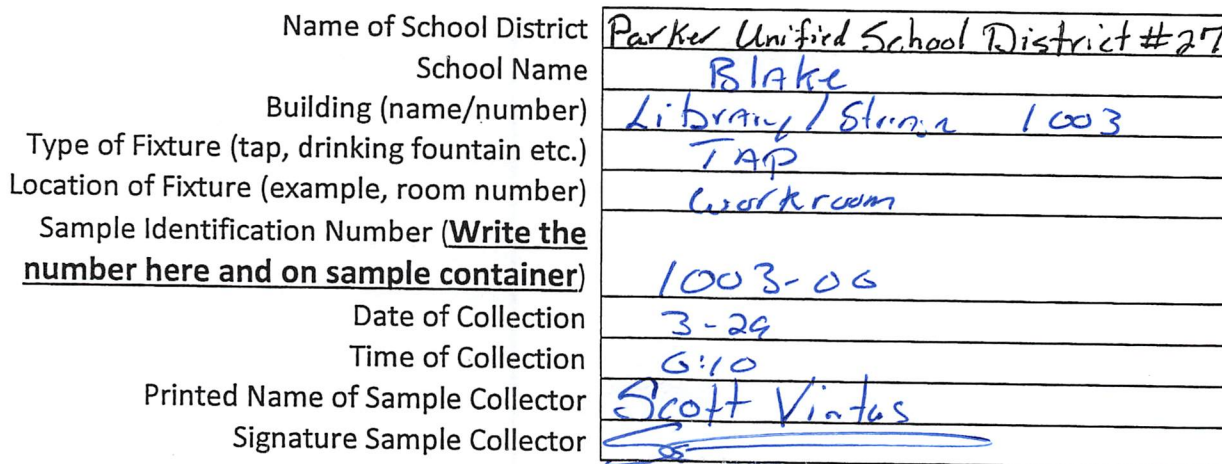 Name of School District Parker Unified School District #27
School Name Blake
Building (name/number) Library / 1003
Type of Fixture (tap, drinking fountain etc.) TAP
Location of Fixture (example, room number) Workroom
Sample Identification Number (Write the
number here and on sample container) 1003-06
Date of Collection 3-29
Time of Collection 6:10
Printed Name of Sample Collector Scott
Signature Sample Collector